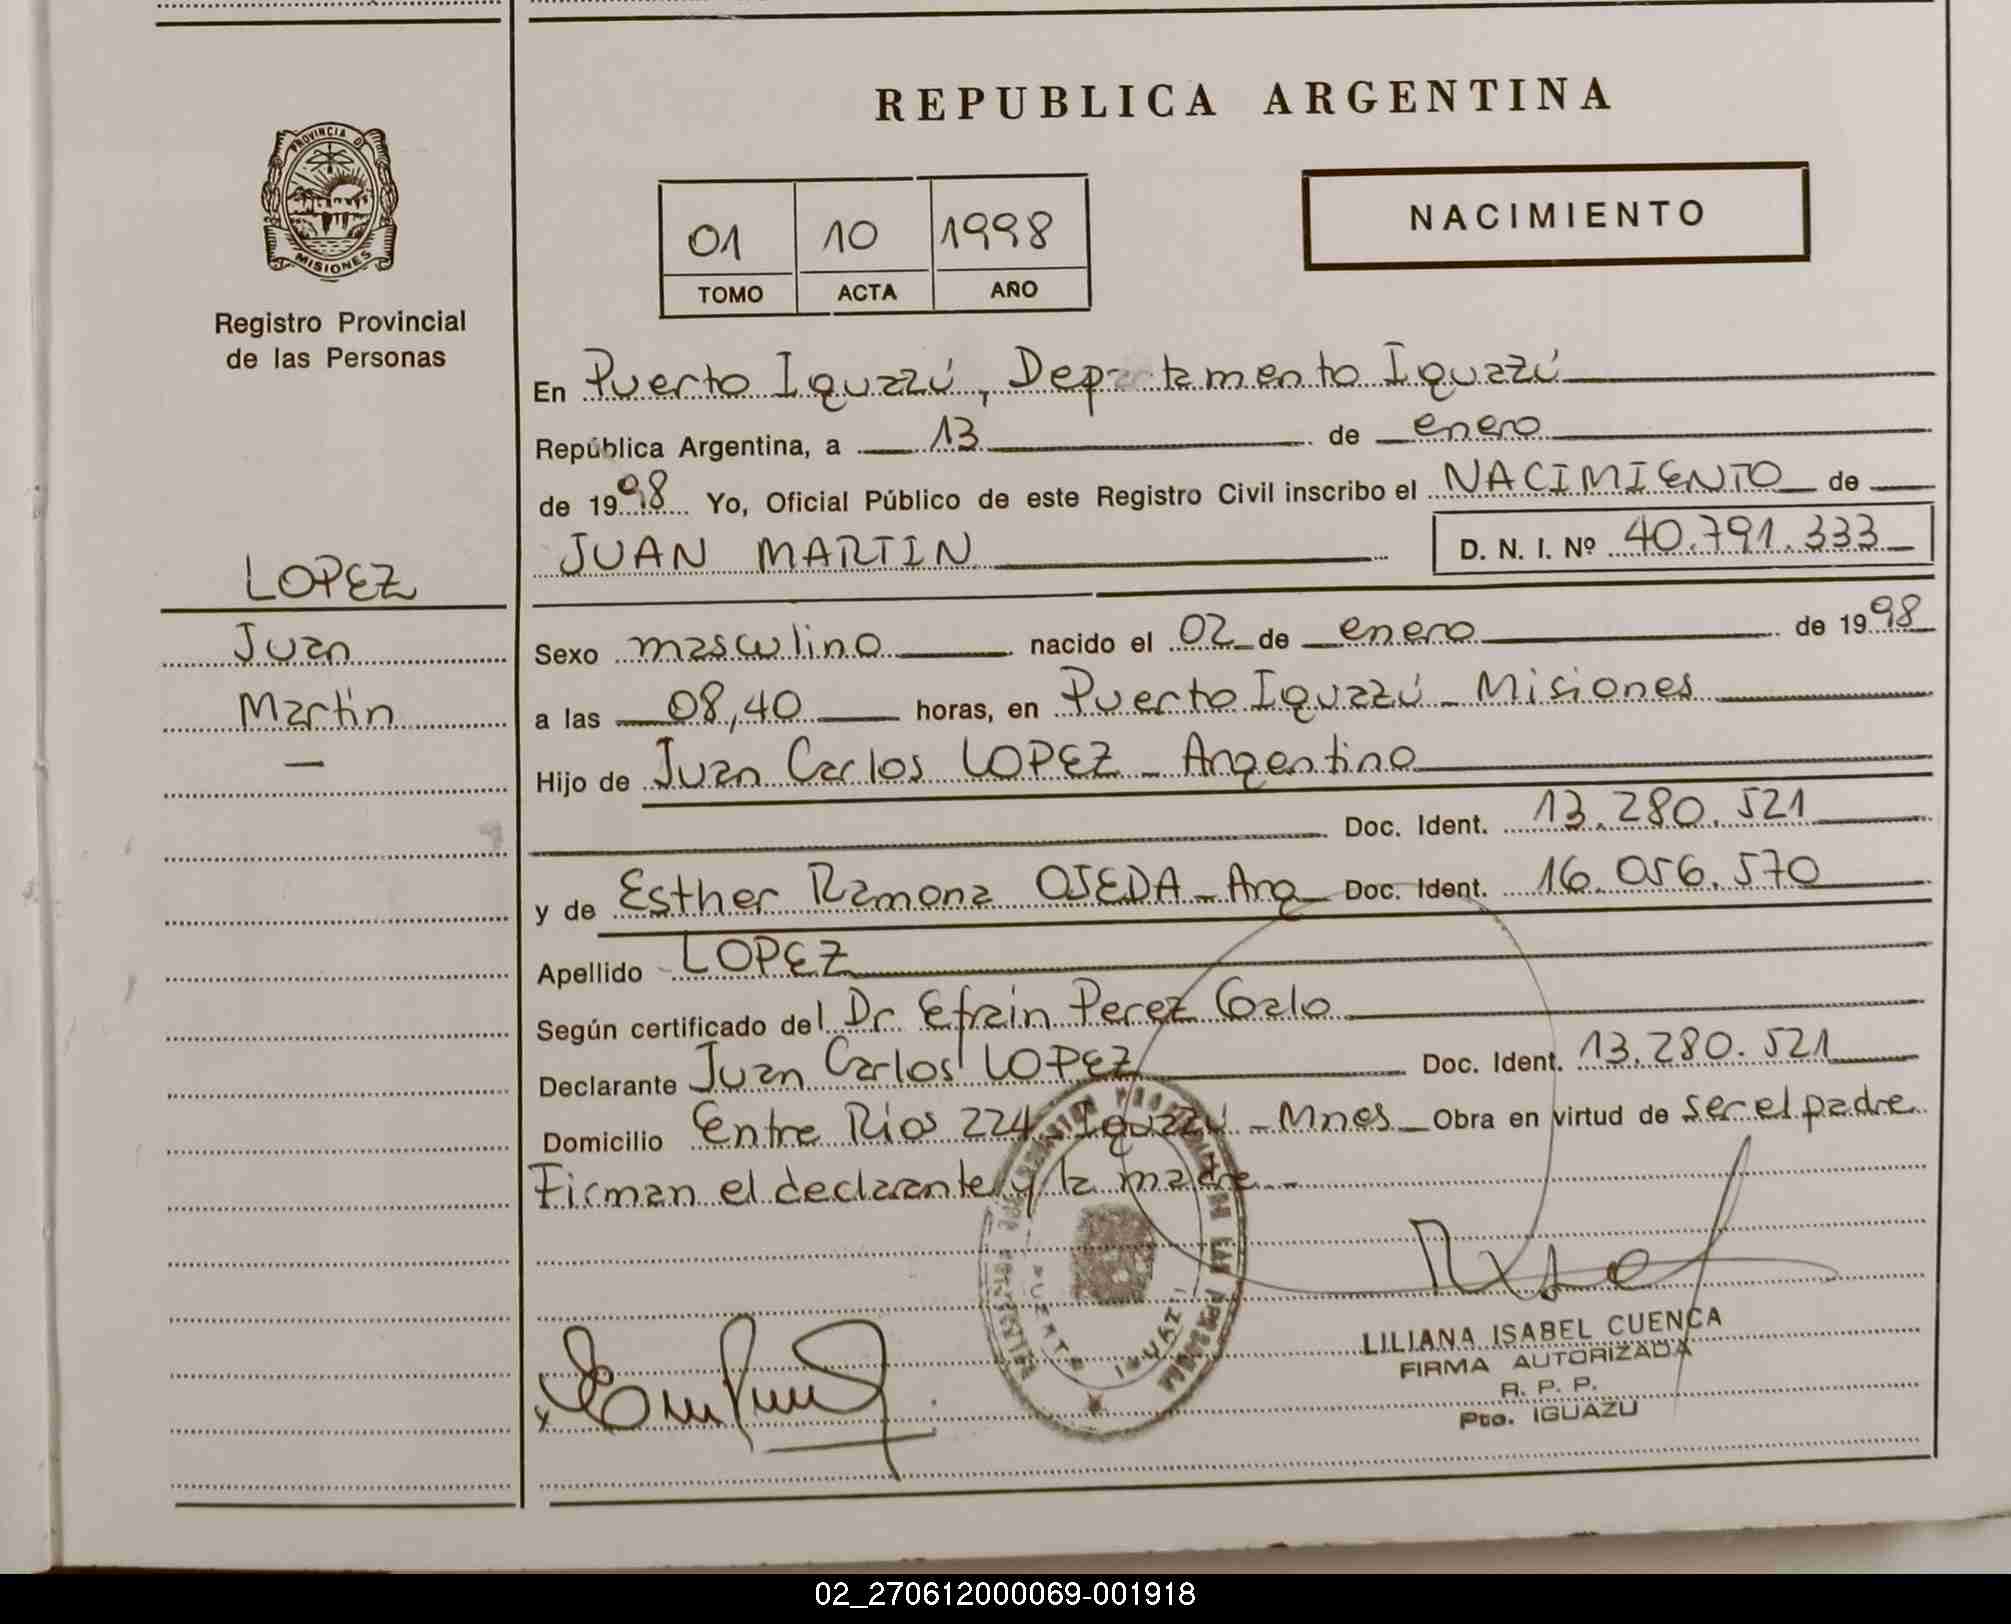 REPUBLICA ARGENTINA
PROVINCIA D
MISIONES
Registro Provincial
de las Personas
01 10 1998
TOMO ACTA AÑO
NACIMIENTO
En Puerto Iguazú, Departamento Iguazú
República Argentina, a 13 de enero
de 1998 Yo, Oficial Público de este Registro Civil inscribo el NACIMIENTO de
JUAN MARTIN D. N. I. Nº 40.791.333
LOPEZ
Juan
Martin
Sexo masculino nacido el 02 de enero de 1998
a las 08,40 horas, en Puerto Iguazú - Misiones
Hijo de Juan Carlos LOPEZ - Argentino
Doc. Ident. 13.280.521
y de Esther Ramona OJEDA - Arg Doc. Ident. 16.056.570
Apellido LOPEZ
Según certificado del Dr Efrain Perez
Declarante Juan Carlos LOPEZ Doc. Ident. 13.280.521
Domicilio Entre Rios 224 - Iguazú - Mnes - Obra en virtud de ser el padre
Firman el declarante y la madre -
LAS
PUERTO IGUAZU
LILIANA ISABEL CUENCA
FIRMA AUTORIZADA
R. P. P.
Pto. IGUAZU
02_270612000069-001918